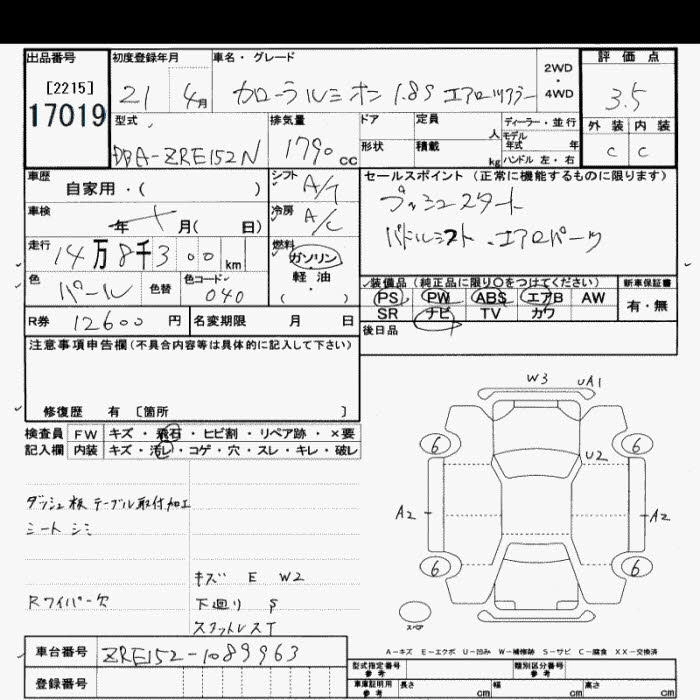 出品番号 初度登録年月 車名・グレード 2WD・4WD 評価点
[2215]
17019 21 4月 カローラルミオン 1.8S エアロツアラー 3.5
型式 排気量 ドア 定員 人 ディーラー・並行 外装 内装
モデル年式 年
DBA-ZRE152N 1790cc 形状 積載 kg ハンドル 左・右 C C
車歴 自家用・( ) シフト A/T セールスポイント(正常に機能するものに限ります)
車検 年 月( 日) 冷房 A/C プッシュスタート
走行 14万8千300km 燃料 ガソリン・軽油・( ) パドルシフト.エアロパーツ
色 パール 色替 色コード 040 装備品(純正品に限り○をつけてください) 新車保証書
PS PW ABS エアB AW 有・無
SR ナビ TV カワ
R券 12600円 名変期限 月 日 後日品
注意事項申告欄(不具合内容等は具体的に記入して下さい)
修復歴 有 [箇所 ]
検査員 FW キズ・飛石・ヒビ割・リペア跡・×要
記入欄 内装 キズ・汚レ・コゲ・穴・スレ・キレ・破レ
W3 UA1
6 6
U2
A2 A2
6 6
スペア
ダッシュ板 テーブル取付加工
シート シミ
キズ E W2
Rワイパー欠 下廻り S
スタットレスT
A-キズ E-エクボ U-凹み W-補修跡 S-サビ C-腐食 XX-交換済
車台番号 ZRE152-1089963
型式指定番号 参考 類別区分番号 参考
登録番号 車庫証明用 参考 長さ cm 幅 cm 高さ cm